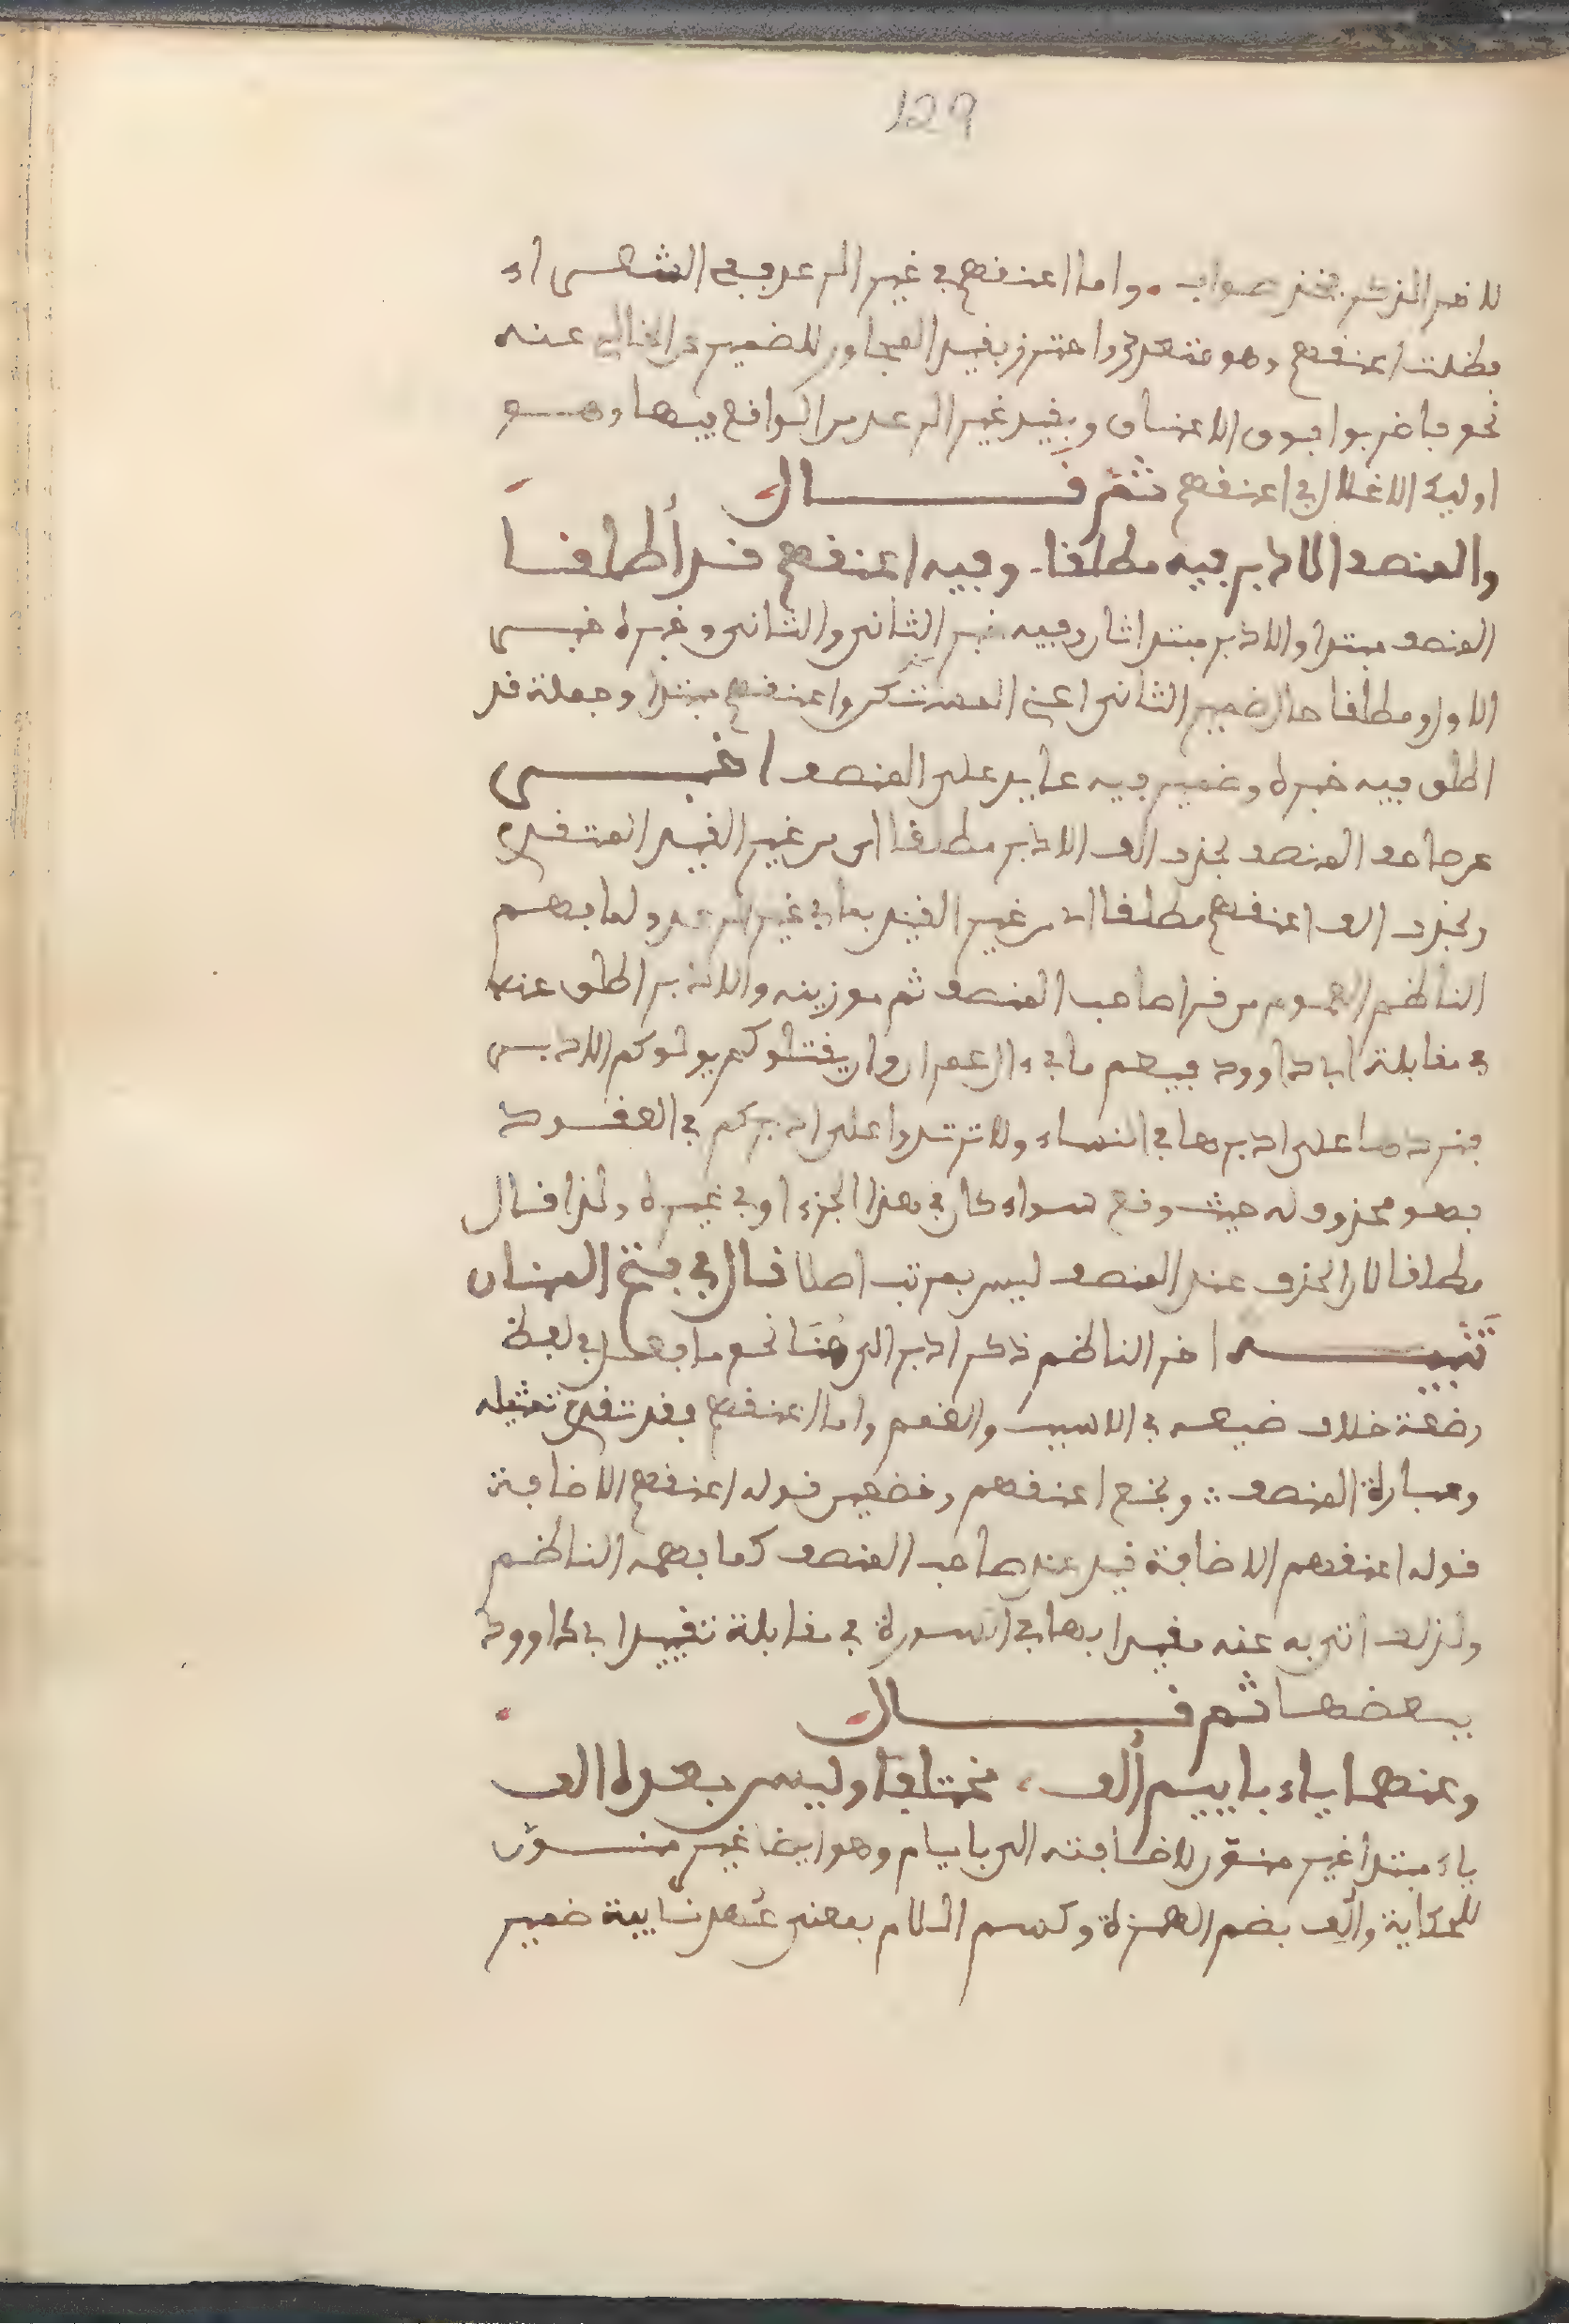 129
لاخير الذكر بخذ صواب . واما اعنفهم في غير الرعد ففي الشعراء
فظلت اعنفهم وهو متعدد واحترز بقيد المجاور للضمير عن الخالي عنه
نحو فاضربوا فوق الاعناق وبقيد غير الرعد من الواقع فيها وهو
اوليك الاغلال في اعنفهم ثم قال
والمنصف الادبر فيه مطلقا . وفيه اعنفهم قد أطلقا
المنصف مبتدا والادبر مبتدا ثان وفيه خبر الثاني والثاني وخبره خبر
الاول ومطلقا حال ضمير الثاني اعني المستتر واعنفهم مبتدا وجملة قد
اطلق فيه خبره وضمير فيه عايد على المنصف اخبر
عن صاحب المنصف بحذف الف الادبر مطلقا اي من غير القيد المتقدم
وبحذف الف اعنفهم مطلقا اي من غير القيد بما في غير الرعد ولما فهم
الناظم العموم من قرا صاحب المنصف ثم موزينه والادبر اطلق عنه
في مقابلة ابا داوود فيهم ما في ءال عمران وان يقتلوكم يولوكم الادبر
فنردها على ادبرها في النساء ولا ترتدوا على ادبركم في العقود
فهو محذوف له حيث وقع سواء كان في هذا الجزء او في غيره ولذا قال
مطلقا لان الحذف عند المنصف ليس بمرتب اصلا قال في فتح المنان
تنبيه اخر الناظم ذكر ادبر الى هنا نحو ما فعل في لفظة
رضعة خلاف ضيعه في الاسباب والغمم واما اعنفهم فقد تقدم تمثيله
وعبارة المنصف ؞ وبخع اعنفهم وخضعين قوله اعنفهم الاضافة
قوله اعنفهم الاضافة قيد عند صاحب المنصف كما فهمه الناظم
ولذلك اتى به عنه مقيدا بها في السورة في مقابلة تقييد ابي داوود
ببعضها ثم قال
وعنهما ياء باييم ألف . مختلفا وليس بعده الف
ياء مبتدا غير منون لاضافته الى باييام وهو ايضا غير منون
للحكاية وألف بضم الهمزة وكسر اللام بمعنى عُهد نايبه ضمير